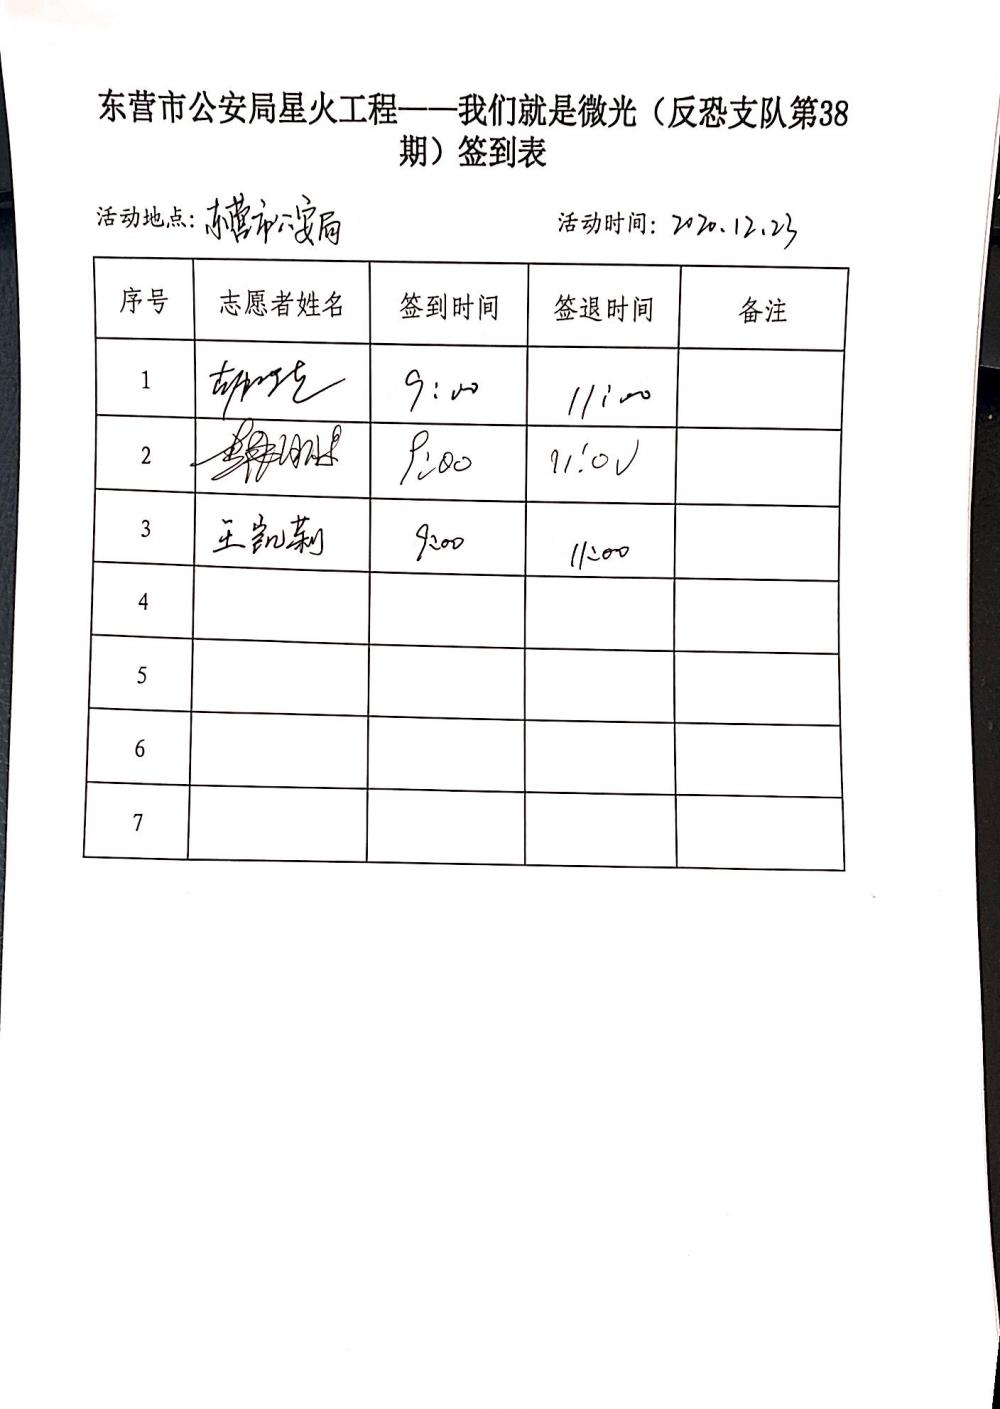 东营市公安局星火工程——我们就是微光（反恐支队第38
期）签到表
活动地点：东营市公安局 活动时间：2020.12.23
序号 志愿者姓名 签到时间 签退时间 备注
1 9:00 11:00
2 9:00 11:00
3 王凯莉 9:00 11:00
4
5
6
7